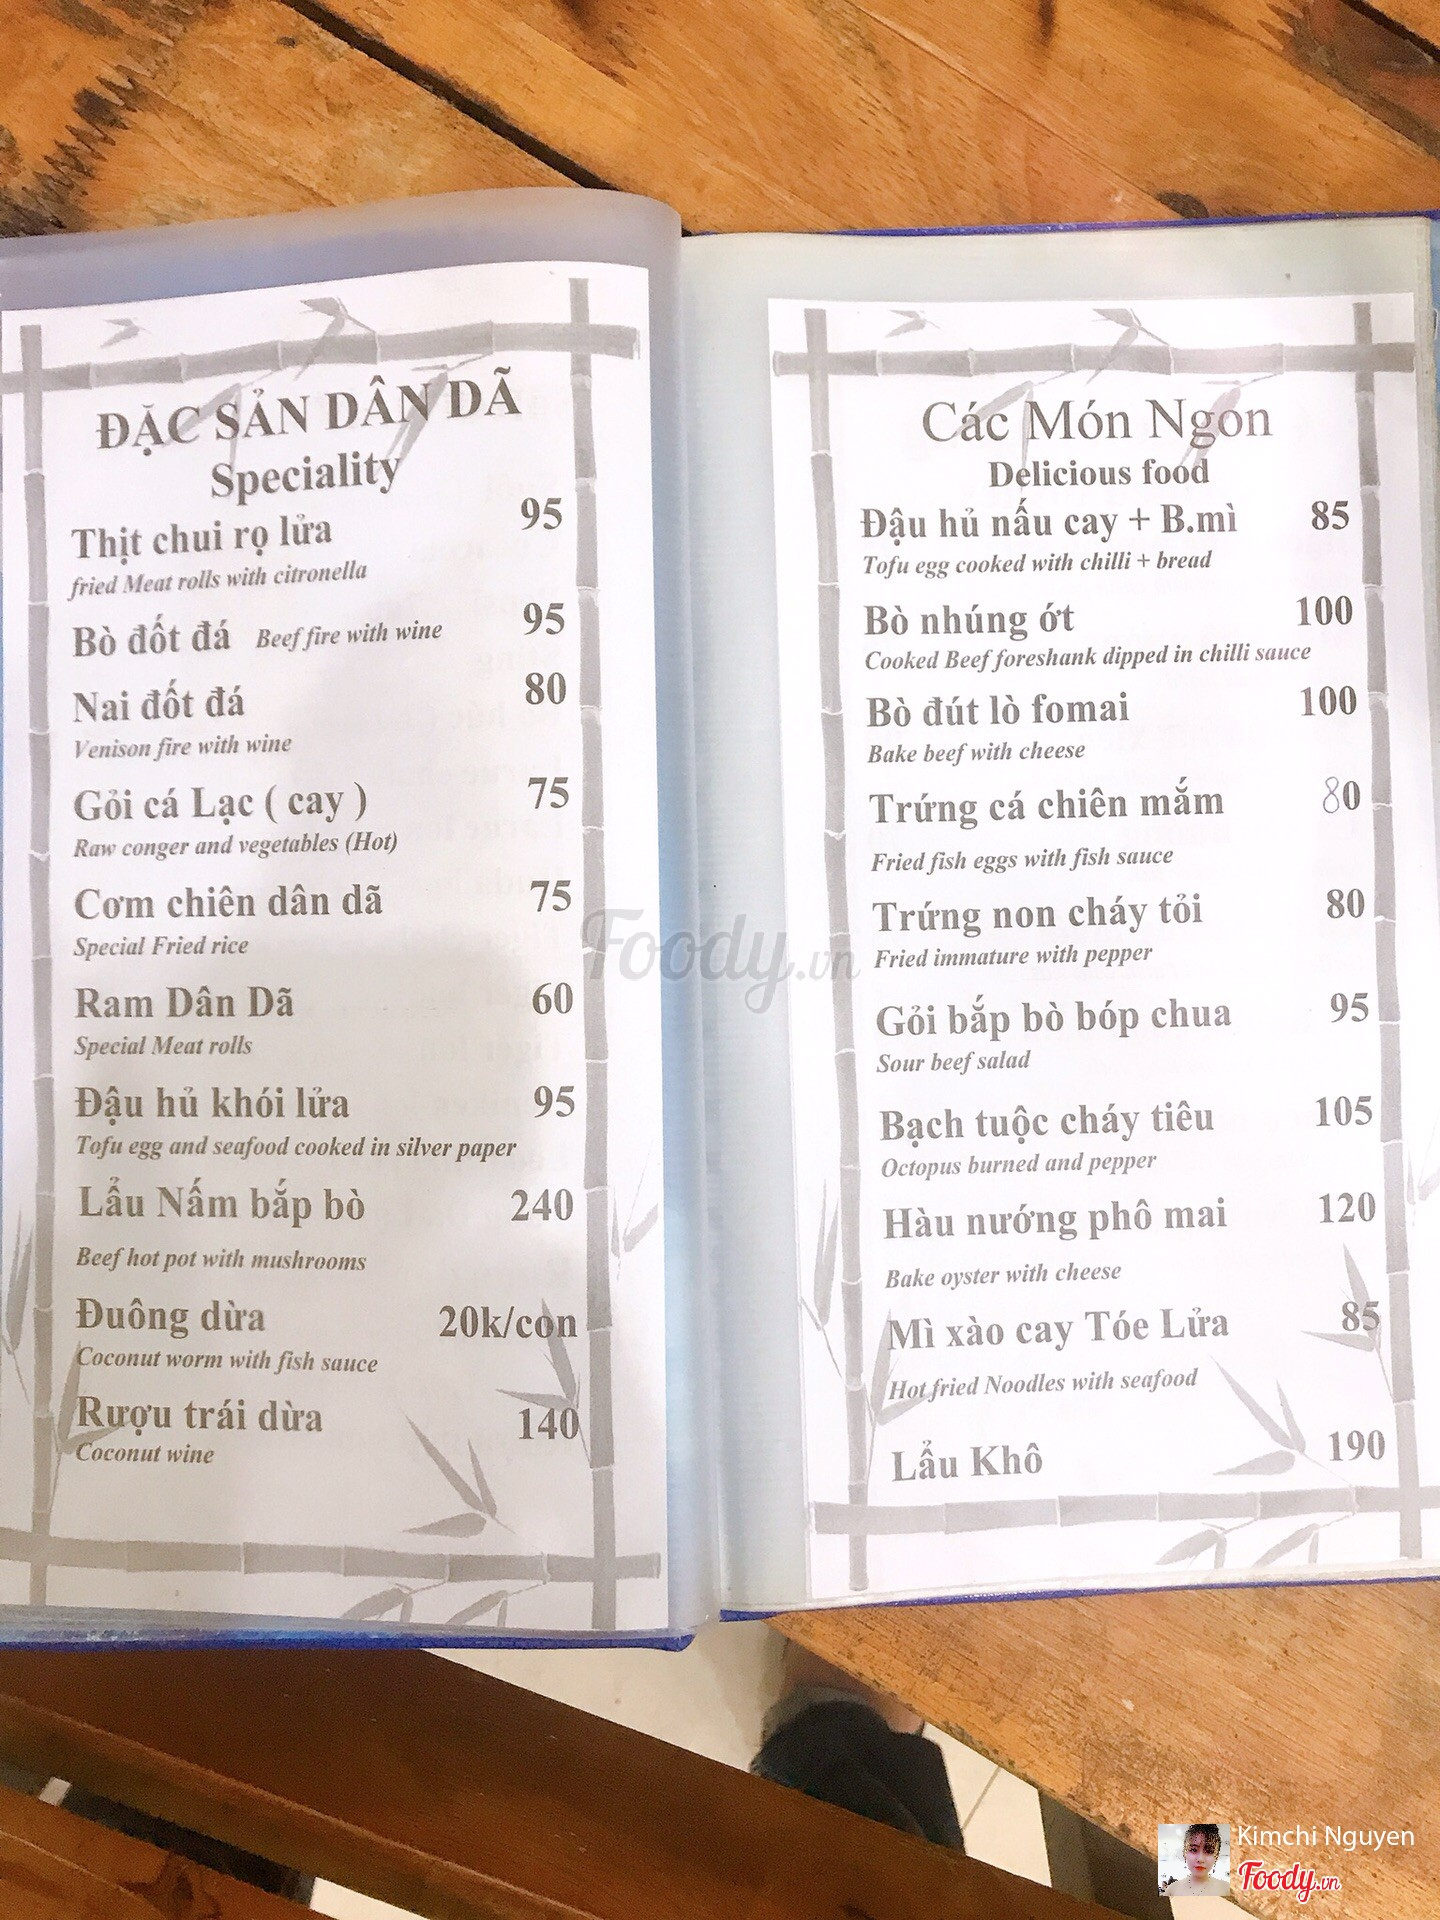 ĐẶC SẢN DÂN DÃ
Speciality
Thịt chui rọ lửa 95
fried Meat rolls with citronella
Bò đốt đá Beef fire with wine 95
Nai đốt đá 80
Venison fire with wine
Gỏi cá Lạc ( cay ) 75
Raw conger and vegetables (Hot)
Cơm chiên dân dã 75
Special Fried rice
Ram Dân Dã 60
Special Meat rolls
Đậu hủ khói lửa 95
Tofu egg and seafood cooked in silver paper
Lẩu Nấm bắp bò 240
Beef hot pot with mushrooms
Đuông dừa 20k/con
Coconut worm with fish sauce
Rượu trái dừa 140
Coconut wine
Các Món Ngon
Delicious food
Đậu hủ nấu cay + B.mì 85
Tofu egg cooked with chilli + bread
Bò nhúng ớt 100
Cooked Beef foreshank dipped in chilli sauce
Bò đút lò fomai 100
Bake beef with cheese
Trứng cá chiên mắm 80
Fried fish eggs with fish sauce
Trứng non cháy tỏi 80
Fried immature with pepper
Gỏi bắp bò bóp chua 95
Sour beef salad
Bạch tuộc cháy tiêu 105
Octopus burned and pepper
Hàu nướng phô mai 120
Bake oyster with cheese
Mì xào cay Tóe Lửa 85
Hot fried Noodles with seafood
Lẩu Khô 190
Foody.vn
Kimchi Nguyen
Foody.vn